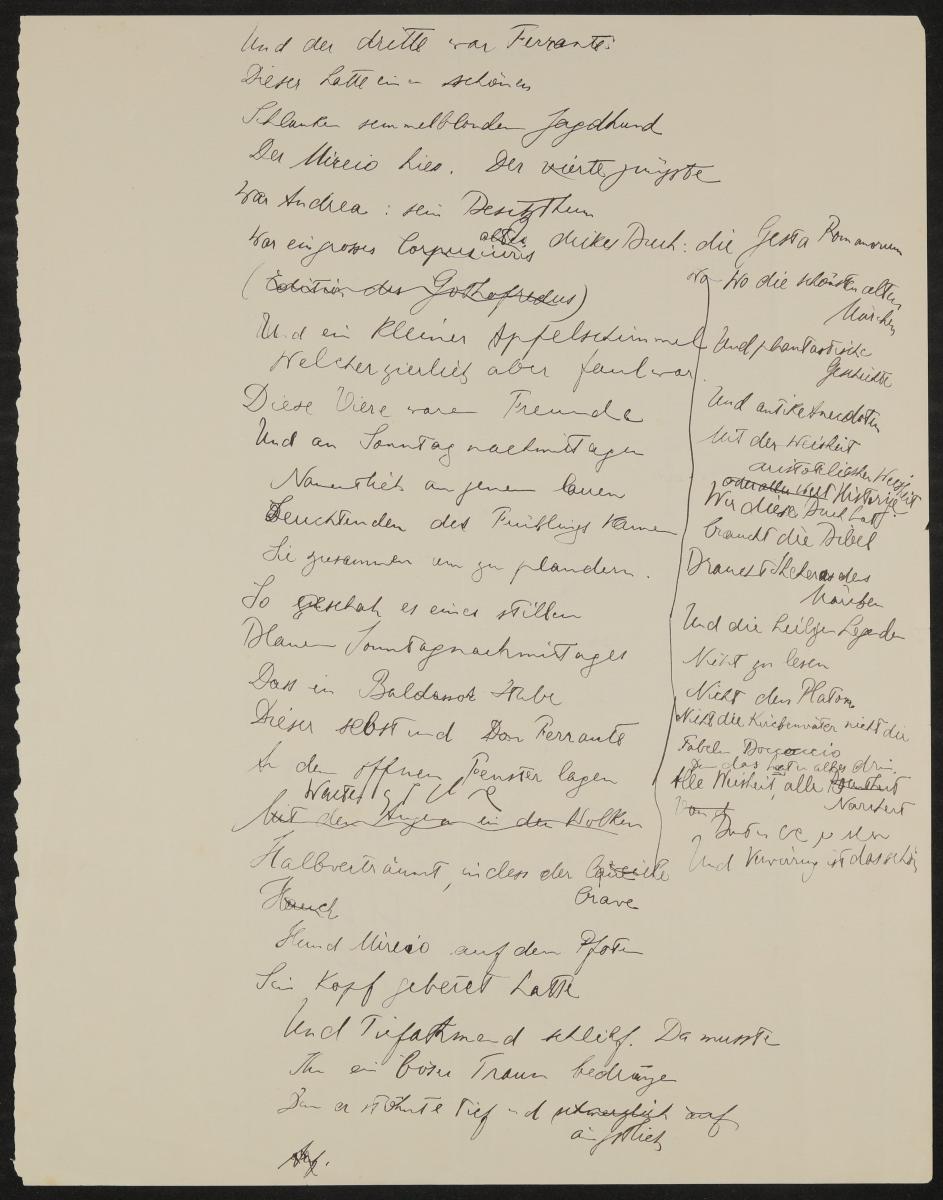 Und der dritte war Ferrante:
Dieser hatte einen schönen
Schlanken semmelblonden Jagdhund
Der Mireio hies. Der vierte jüngste
War Andrea: sein Besitzthum
War ein grosses Corpus iuris
altes dickes Buch: die Gesta Romanorum
(Edition des Gothofredus)
Und ein kleiner Apfelschimmel
Welcher zierlich aber faul war.
Diese Viere waren Freunde
Und an Sonntagnachmittagen
Namentlich an jenen lauen
Leuchtenden des Frühlings kamen
Sie zusammen um zu plaudern.
So geschah es eines stillen
Blauen Sonntagnachmittages
Dass in Baldassar Stube
Dieser selbst und Don Ferrante
An den offnen Fenster lagen
Mit den Augen in den Wolken
Halbverträumt, indess der
brave
Hauch
Hund Mireio auf den Pfoten
Sein Kopf gebettet hatte
Und Tiefathmend schlief. Da musste
Ihn ein böser Traum bedrängen
Denn er stöhnte tief und schmerzlich auf
ängstlich
Auf.
Wo Wo die schönsten alten
Märchen
Und phantastische
Geschichte
Und antike Anecdoten
Mit der Weisheit
aristotelischer Weisheit
oder alten Welt Historie
Wer dieses Buch hat
braucht die Bibel
Braucht Sheherasades
Märchen
Und die heilgen Legenden
Nicht zu lesen
Nicht den Platon
Nicht die Kirchenväter nicht die
Fabeln Boccaccio
Denn das hat er alles drin.
Alle Weisheit, alle
Narrheit
Und Verwirrung ist das schön